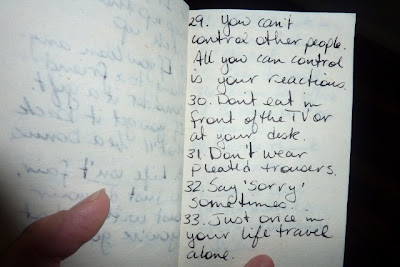 29. You can't
control other people.
All you can control
is your reactions.
30. Don't eat in
front of the TV or
at your desk.
31. Don't wear
pleated trousers.
32. Say 'sorry'
sometimes.
33. Just once in
your life travel
alone.